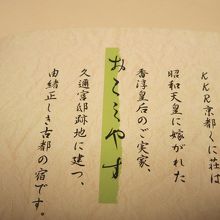 KKR京都くに荘は
昭和天皇に嫁がれた
香淳皇后のご実家、
おこしやす
久邇宮邸跡地に建つ、
由緒正しき古都の宿です。